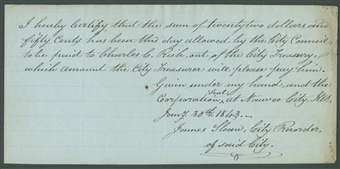 I hereby Certify that the sum of twenty two dollars and
fifty Cents has been this day allowed by the City Council
to be paid to Charles C. Rich, out of the City Treasury,
which amount the City Treasurer will please pay him.
Given under my hand, and the
Seal
Corporation, at Nauvoo City, Ills,
Jany. 30th 1843.
James Sloan, City Recorder,
of said City.